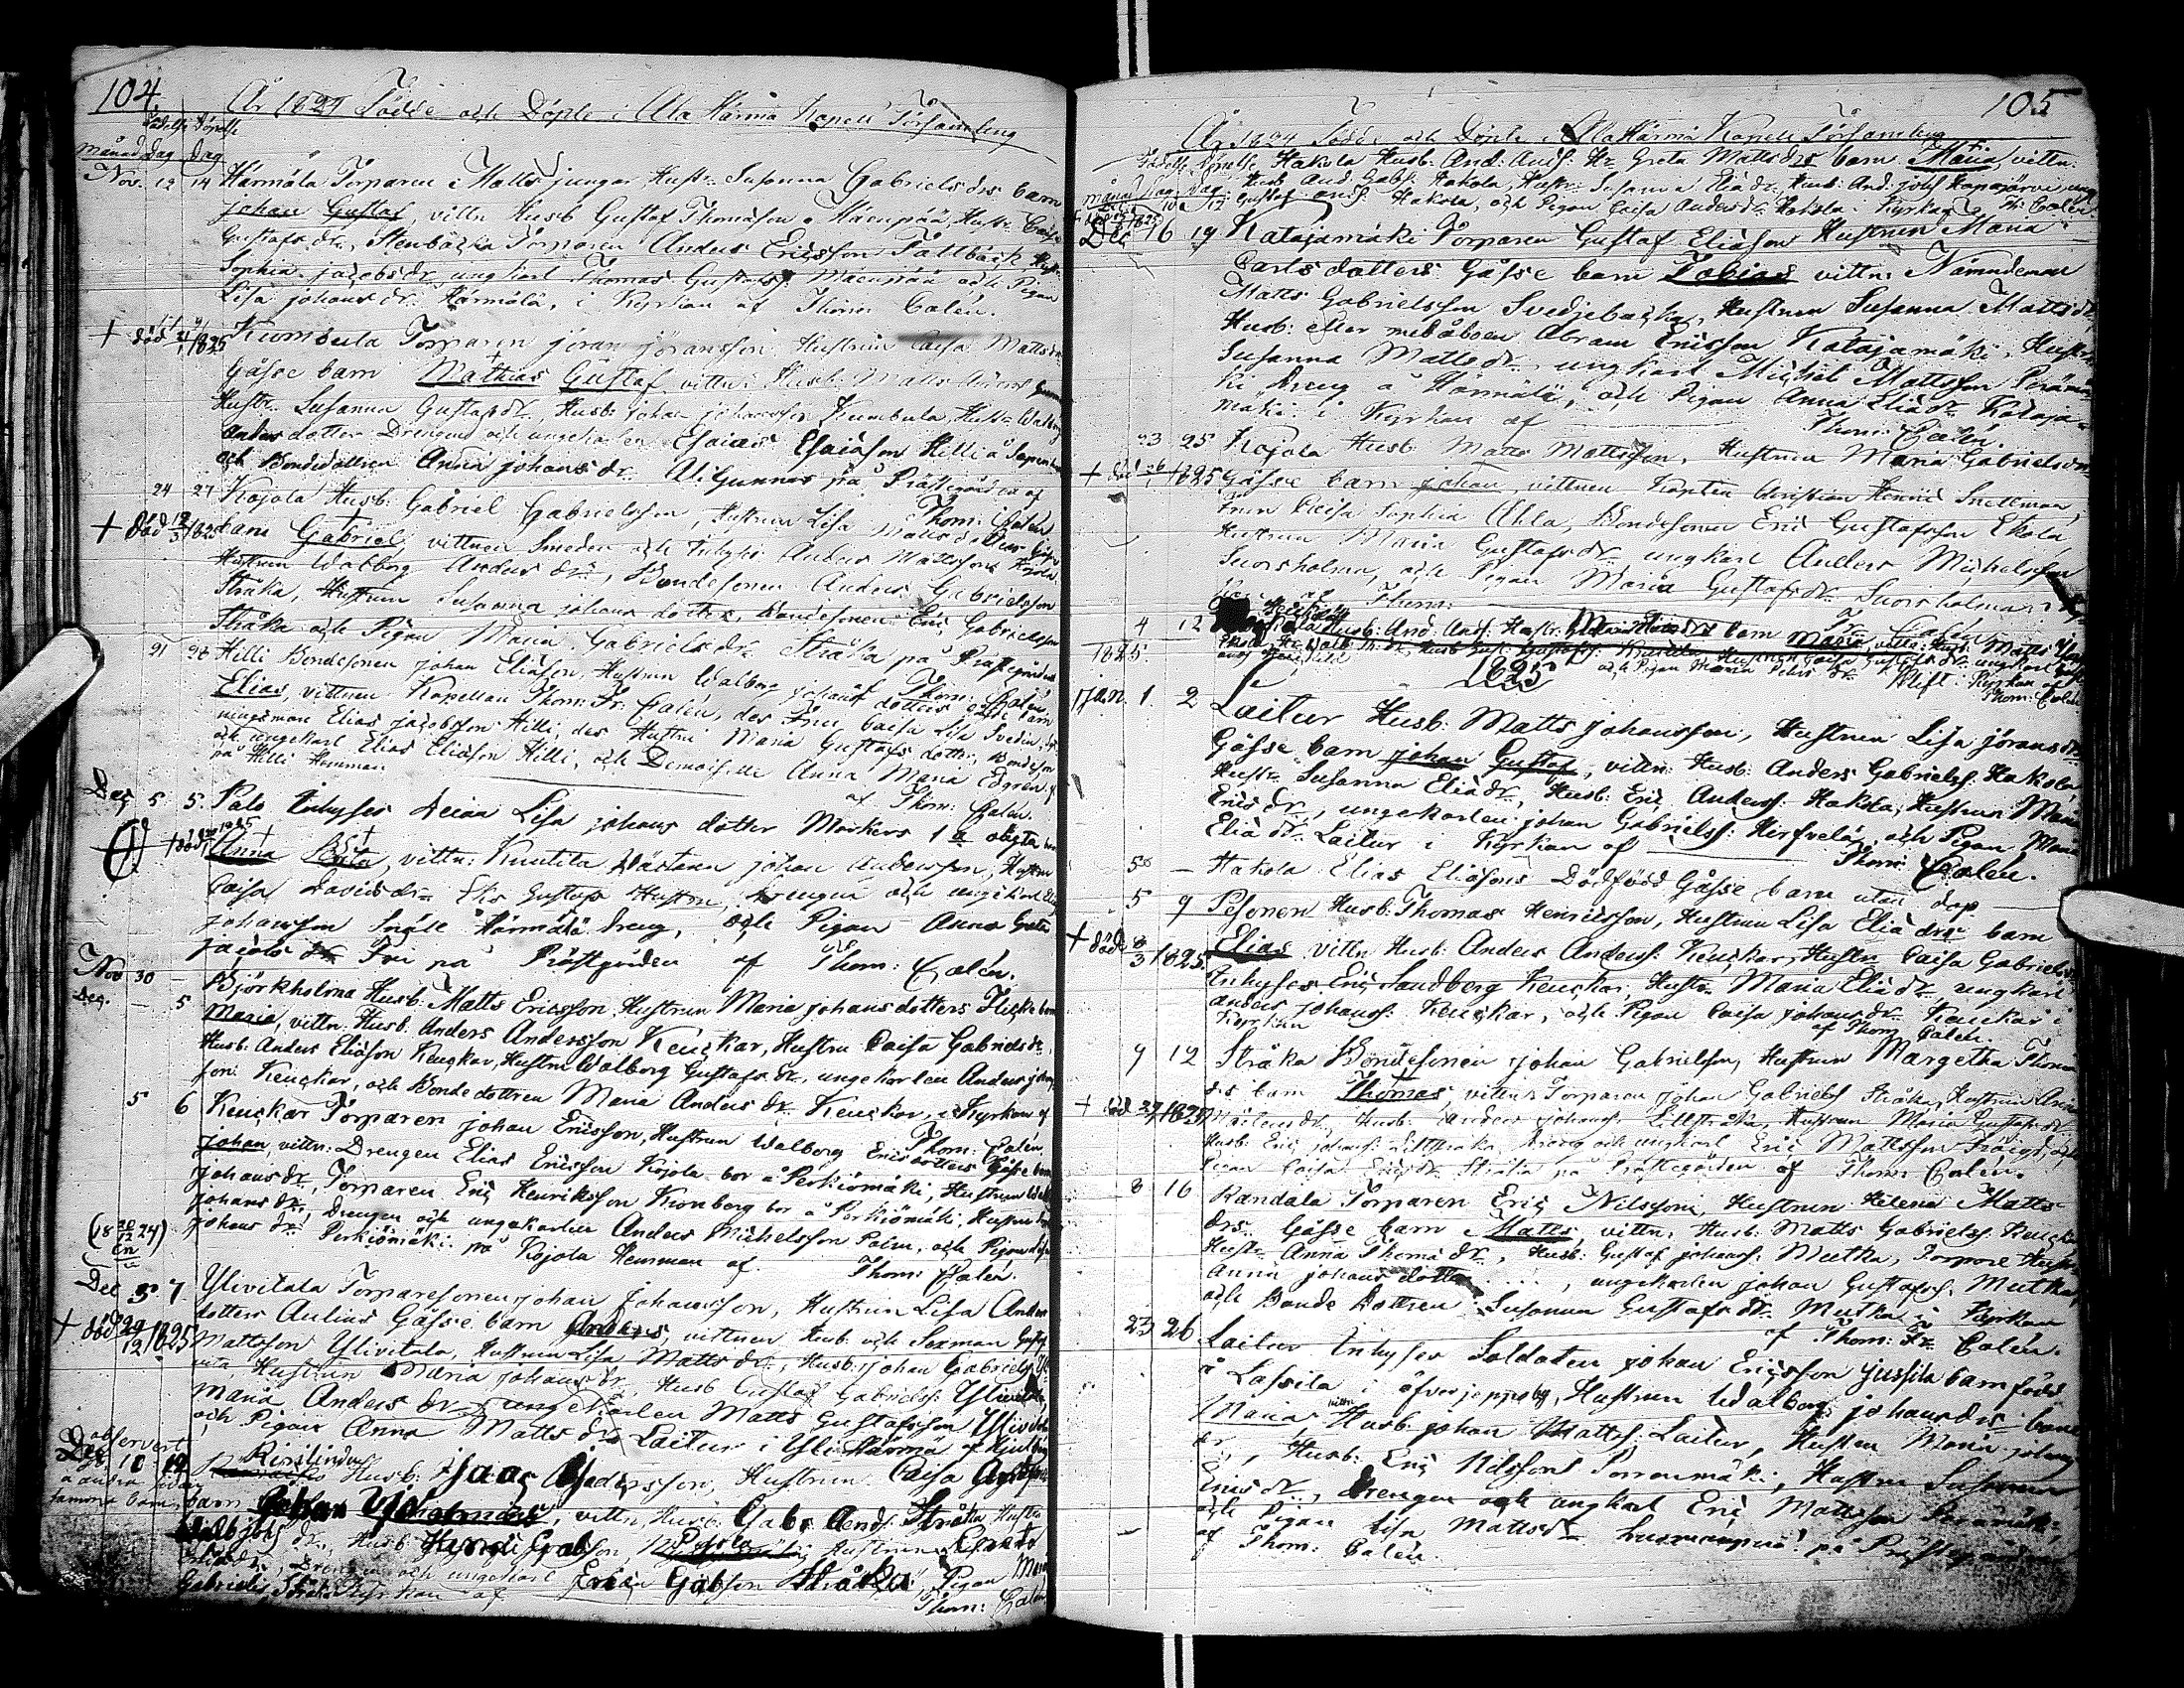 104.
År 1824 Födde och Döpte i Ala Härmä Kapell Församling
Födelse Döpelse
Månad Dag Dag
Nov. 12 14 Härmälä Torparen Matts jungar Hustr. Susanna Gabriels drs barn
Johan Gustaf, vittn Husb Gustaf Thomasson Mäenpää, Hustr Caisa
Gustafs dr, Stenbacka Torparen Anders Ericsson Tallbäck, Hustr
Sophia jacobs dr ungkarl Thomas Gustafss Mäenpää och Pigan
Lisa johans dr Härmälä, i Kyrkan af Thom: Calén.
+ död 1825 Kumbula Torparen jöran jöransson Hustrun Caisa Matts drs
Gåsse barn Mathias Gustaf vittn: Husb: Matts
Hustr. Susanna Gustafs dr, Husb: johan johansson Kumbula, Hustr Walborg
Anders dotter Drengen och ungekarlen Esaias Esaiason Hilli å
och Bondedottren Anna johans dr. Ala Gunnar på Prästgården af
24 27 Kojola Husb: Gabriel Gabrielsson, Hustrun Lisa Matts dotters Gåsse Thom: Calén
+ död 12/3 1825 barn Gabriel, vittnen Smeden och Inhyses Anders Mattsson Kojola
Hustrun Walborg Anders dr, Bondesonen Anders Gabrielsson
Stråka, Hustrun Susanna johans dotter, Bondesonen Eric Gabrielsson
Stråka och Pigan Maria Gabriels dr Stråka på Prästgården
Thom: Calén.
21 28 Hilli Bondesonen johan Eliasson, Hustrun Walborg johans dotters Gåsse barn
Elias, vittnen Kapellan Thom: Fr: Calén, des Fru Caisa Lisa Svedin,
Elias jacobsson Hilli, des Hustru Maria Gustafs dotter, Bondeson
och ungekarl Elias Eliasson Hilli, och Demoiselle Anna Maria Edgren
på Hilli Hemman af Thom: Calén.
Dec 5 5. Palo Inhyses Deian Lisa johans dotter Markers 1a oägta
+ död 1825 Anna Brita, vittn: Kuutila johan Andersson, Hustrun
Caisa Davids dr Gustafs Hustru, Drengen och ungekarl
johansson Snåle Härmälä Dreng, och Pigan Anna Greta
jacobs dr Fri på Prästgården af Thom: Calén.
Nov 30 —
Dec. — 5 Björkholma Husb: Matts Ericsson Hustrun Maria johans dotters Flicke barn
Maria, vittn Husb: Anders Andersson Keuckar, Hustru Caisa Gabriels dr,
Husb: Anders Eliason Keuckar, Hustru Walborg Gustafs dr, ungekarlen Anders johans
son Keuckar, och Bonde dottren Maria Anders dr Keuckar, i Kyrkan af
Thom: Calén.
5 6 Keuckar Torparen johan Ericsson, Hustrun Walborg Erics dotters Gåsse barn
johan, vittn: Drengen Elias Ericsson Kojola bor å Perkiömäki, Hustrun
johans dr, Torparen Eric Henriksson Kronberg bor å Perkiömäki, Hustrun
johans dr, Drengen och ungekarlen Anders Michelsson Palm, och Pigan Lisa
johans dr Perkiömäki på Kojola Hemman af Thom: Calén.
(18 20/12 24)
Dec 5 7. Ylivitala Torparesonen johan johansson, Hustrun Lisa Anders
+ död 29/12 1825 dotters Gåsse barn Anders, vittnen Husb: och Sexman Gustaf
Mattsson Ylivitala, Hustrun Lisa Matts dr, Husb: johan Gabrielss
Hustrun Maria johans dr, Husb Gustaf Gabrielss: Ylivitala
Maria Anders dr, ungekarlen Matts Gustafsson Ylivitala
och Pigan Anna Matts dr Laitur i Yli Härmä af
observera
Dec 10 12 Rinstindus Husb: Isaac Andersson, Hustrun Caisa
barn johan, vittn, Husb: Gabr Ands Stråka Hustru
Walb johs dr, Husb: Henric Gabsson, Pesola Hustrun Greta
Elias dr, Drengen och ungekarl Erich Gabsson Stråka, Pigan Maria
Gabriels Stråka Kyrkan af Thom: Calén
105
År 1824 Födde och Döpte i Ala Härmä Kapell Församling
Födelse Döpelse Hakola Husb: And: Ands: Hr Greta Matts drs barn Maria, vittn:
Månad Dag Dag Husb And: Gabs: Hakola, Hustr: Susanna Elia dr, Husb: And: johs Haapajärvi, ung
10 12 Gustaf Ands: Hakola, och Pigan Caisa Anders dr Hakola i Kyrkan Th: Calén
Dec 16 19 Katajamäki Torparen Gustaf Eliason Hustrun Maria
Carls dotters Gåsse barn Tobias vittn: Nämndeman
Matts Gabrielsson Svedjebacka, Hustrun Susanna Matts dr,
Husb: eller medåboen Abram Ericsson Katajamäki, Hustr
Susanna Matts dr, ungkarl Michel Mattsson Perämä
ki Dreng å Härmälä, och Pigan Anna Elia dr Kataja-
mäki i Kyrkan af Thom: Calén.
23 25 Kojola Husb: Matts Mattsson, Hustrun Maria Gabriels drs
+ död 26/1 1825 Gåsse barn johan, vittnen Kapten Christian Henric Snellman,
Frun Caisa Sophia Ahla, Bondesonen Eric Gustafsson Ekola,
Hustrun Maria Gustafs dr ungkarl Anders Michelsson
Suorsholma, och Pigan Maria Gustafs dr Suorsholma i
af Thom: Fr Calén
4 12 Husb: And: Ands: Hustr. barn Maria, vittn: Husb: Matts
1825. 1825 och Pigan Maria Pehrs dr Klift i Kyrkan af Thom: Calén
jan. 1. 2 Laitur Husb: Matts johansson, Hustrun Lisa jörans dr
Gåsse barn johan Gustaf, vittn: Husb: Anders Gabrielss: Hakola,
Hustr Susanna Elia dr, Husb: Eric Anderss: Hakola, Hustrun Maria
Erics dr, ungekarlen johan Gabrielss: Herfvelä, och Pigan Maria
Elia dr Laitur i Kyrkan af Thom: Calén.
5 — Hakola Elias Eliasons Dödfödd Gåsse barn utan dop —
5 9 Pesonen Husb: Thomas Henricsson, Hustrun Lisa Elia drs barn
+ död 8/3 1825. Elias vittn Husb: Anders Anderss: Keuckar, Hustru Caisa Gabriels dr
Inhyses Eric Sandberg Keuckar, Hustr Maria Elia dr, ungkarl
Anders johanss: Keuckar, och Pigan Caisa johans dr Keuckar i
Kyrkan af Thom Calén.
9 12 Stråka Bondesonen johan Gabrielsson, Hustrun Margetha Thomae
drs barn Thomas, vittn: Torparen johan Gabrielss Stråka, Hustrun Anna
+ död 27/1 1825 Mårtens dr, Husb: Anders johanss Lillstråka, Hustrun Maria Gustafs dr
Husb: Eric johanss: Lillstråka, Dreng och ungkarl Eric Mattsson
Pigan Caisa Erics dr Stråka på Prästegården af Thom: Calén.
8 16 Randala Torparen Eric Nilssons, Hustrun Helena Matts
drs Gåsse barn Matts, vittn: Husb: Matts Gabrielss: Keuckar
Hustr Anna Thomae dr, Husb: Gustaf johanss: Mutka,
Anna johans dotter . . . . , ungekarlen johan Gustafss: Mutka,
och Bonde Dottren Susanna Gustafs dr Mutka i Kyrkan
af Thom: Fr: Calén.
23 26 Laitur Inhyses Soldaten johan Ericsson jussila barn född
å Lassila i öfver jeppo by, Hustrun Walborg johans drs barn
Maria, vittn Husb johan Mattss: Laitur, Hustrun Maria johans
dr, Husb: Eric Nilsson Porrenmäki, Hustru Susanna
Erics dr, Drengen och ungkarl Eric Mattsson Perämäki
och Pigan Lisa Matts dr på Prästegården
af Thom: Calén.